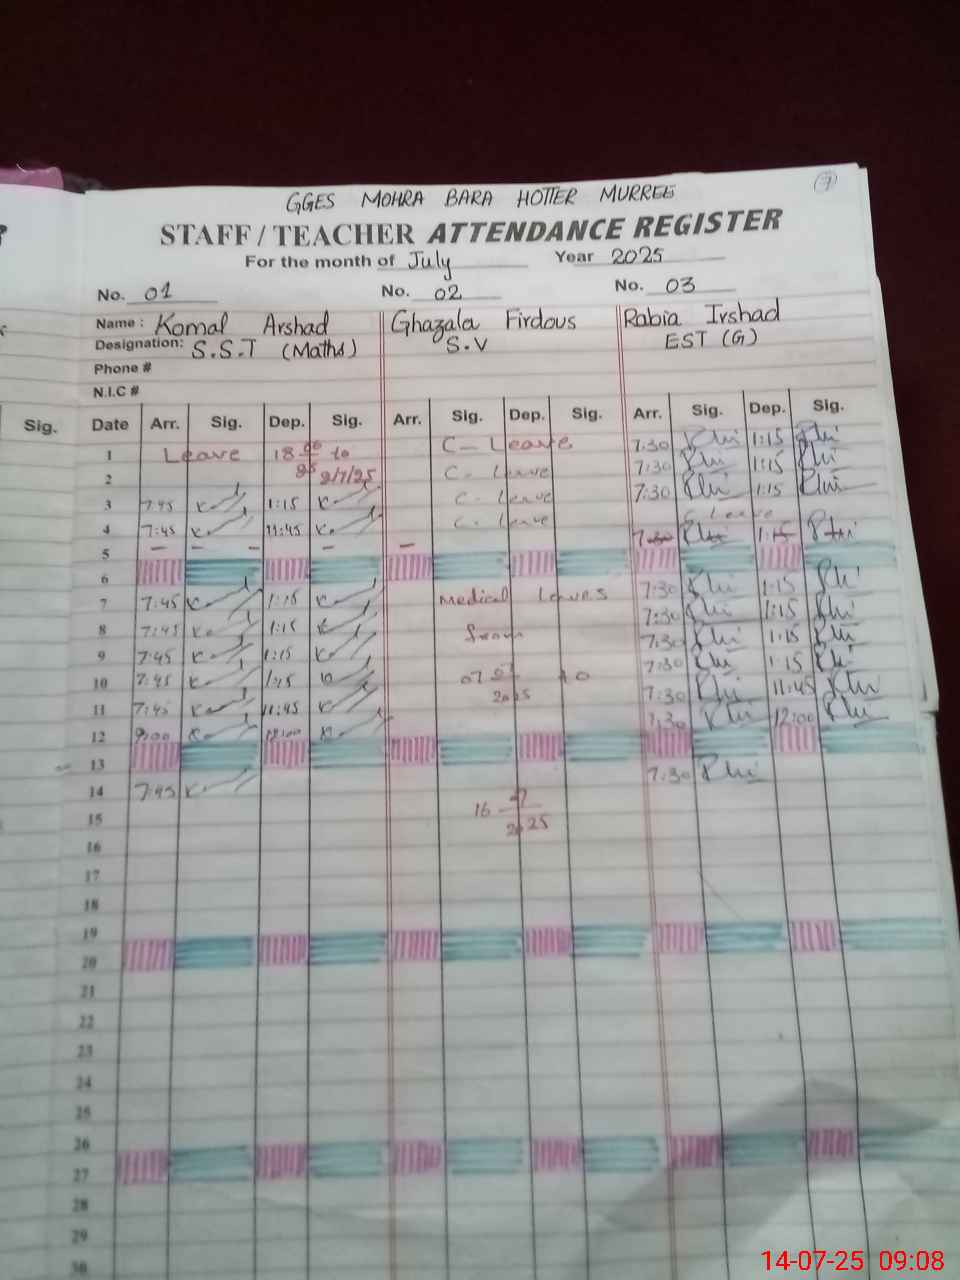 7
GGES MOHRA BARA HOTTER MURREE
STAFF / TEACHER ATTENDANCE REGISTER
For the month of July Year 2025
No. 01 No. 02 No. 03
Name : Komal Arshad Ghazala Firdous Rabia Irshad
Designation: S.S.T (Maths) S.V EST (G)
Phone #
N.I.C #
Sig. Date Arr. Sig. Dep. Sig. Arr. Sig. Dep. Sig. Arr. Sig. Dep. Sig.
1 Leave 18 to C- Leave 7:30 1:15
2 2/7/25 C- Leave 7:30 1:15
3 7:45 1:15 C- Leave 7:30 1:15
4 7:45 11:45 C- Leave C Leave
5 - - - - -
6
7 7:45 1:15 Medical Leaves 7:30 1:15
8 7:45 1:15 from 7:30 1:15
9 7:45 1:15 7:30 1:15
10 7:45 1:15 07 2025 to 7:30 1:15
11 7:45 11:45 7:30 11:45
12 9:00 12:00 7:30 12:00
13
14 7:45 7:30
15 16 2025
16
17
18
19
20
21
22
23
24
25
26
27
28
29
30
14-07-25 09:08